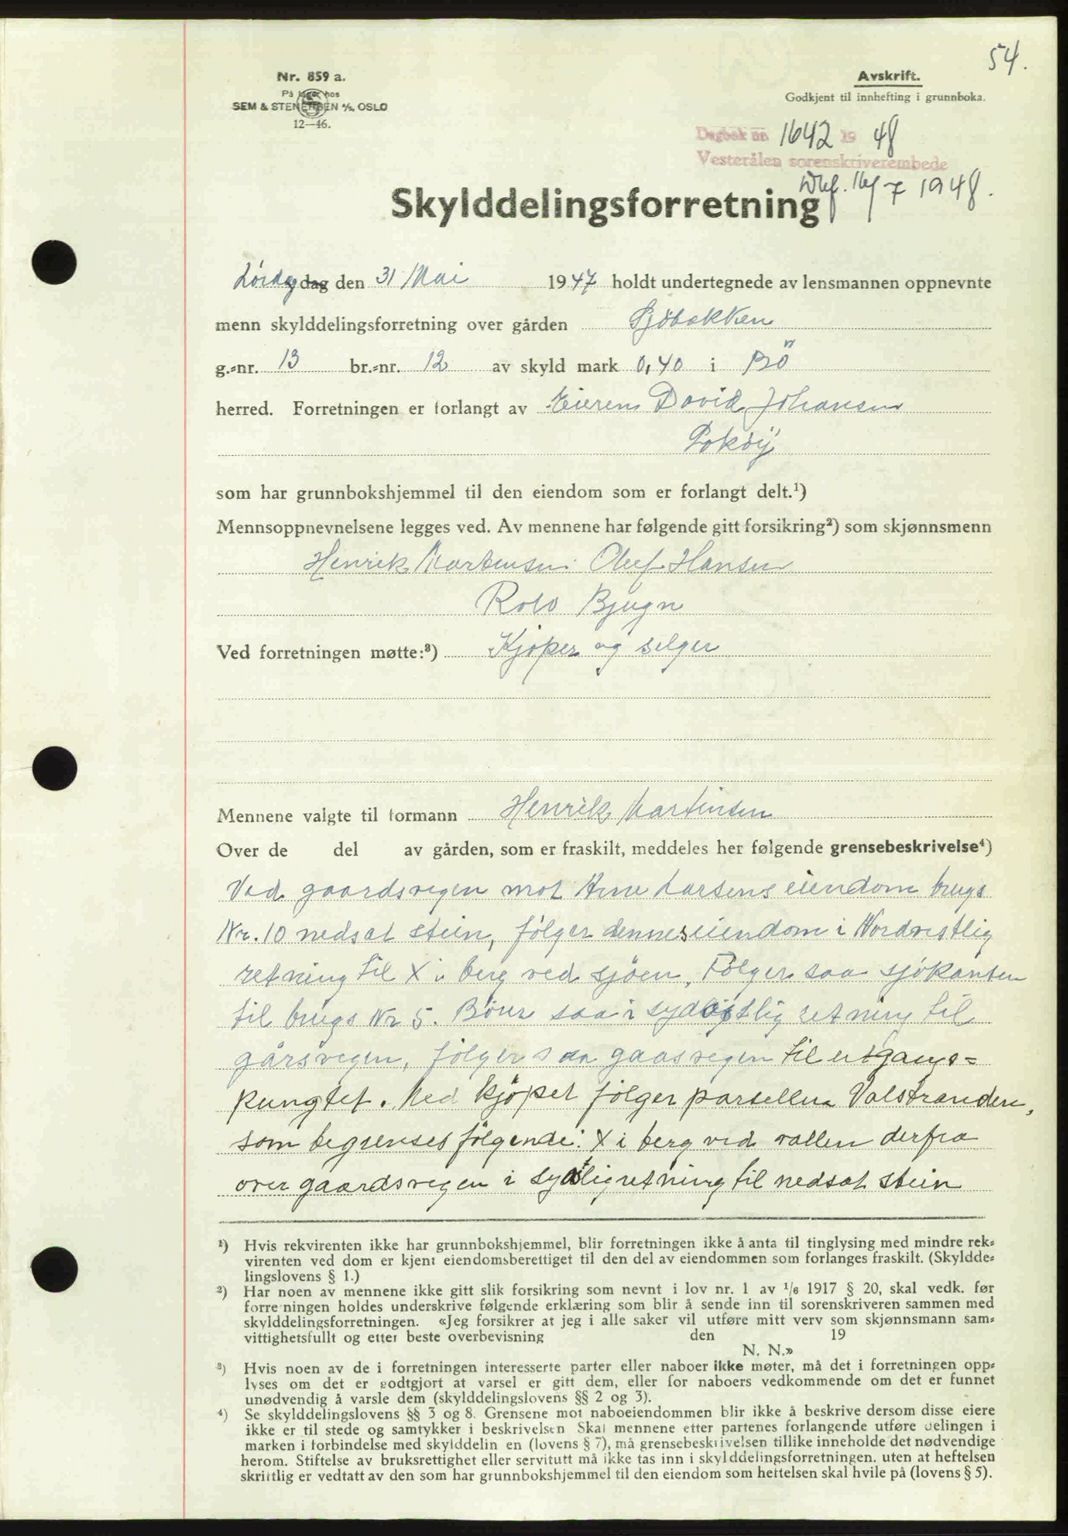 54.
Nr. 859 a.
På lager hos
SEM & STENERSEN A/S, OSLO
12—46.
Avskrift.
Godkjent til innhefting i grunnboka.
Dagbok nr. 1642 19 48
Vesterålen sorenskriverembede
16/7 1948.
Skylddelingsforretning
Lördag dag den 31 Mai 1947 holdt undertegnede av lensmannen oppnevnte
menn skylddelingsforretning over gården Sjöbakken
g.-nr. 13 br.-nr. 12 av skyld mark 0,40 i Bö
herred. Forretningen er forlangt av Eieren David Johansen
Poköy
som har grunnbokshjemmel til den eiendom som er forlangt delt.¹)
Mennsoppnevnelsene legges ved. Av mennene har følgende gitt forsikring²) som skjønnsmenn
Henrik Martinsen Oluf Hansen
Rolv Bjugn
Ved forretningen møtte:³) Kjöper og selger
Mennene valgte til formann Henrik Martinsen
Over de del av gården, som er fraskilt, meddeles her følgende grensebeskrivelse⁴)
Ved gaardsvegen mot Arne Larsens eiendom brugs
Nr. 10 nedsat stein, fölger dennes eiendom i Nordvestlig
retning til X i berg ved sjöen, Fölger saa sjökanten
til brugs Nr 5. saa i sydöstlig retning til
gårsvegen, fölger saa gaasvegen til utgangs=
pungtet. Med kjöpet fölger parsellen Valstranden,
som begrenses fölgende: X i berg ved vallen derfra
over gaardsvegen i sydlig retning til nedsat stein
¹) Hvis rekvirenten ikke har grunnbokshjemmel, blir forretningen ikke å anta til tinglysing med mindre rek-
virenten ved dom er kjent eiendomsberettiget til den del av eiendommen som forlanges fraskilt. (Skyldde-
lingslovens § 1.)
²) Har noen av mennene ikke gitt slik forsikring som nevnt i lov nr. 1 av 1/6 1917 § 20, skal vedk. før
forretningen holdes underskrive følgende erklæring som blir å sende inn til sorenskriveren sammen med
skylddelingsforretningen. «Jeg forsikrer at jeg i alle saker vil utføre mitt verv som skjønnsmann sam-
vittighetsfullt og etter beste overbevisning den 19
N. N.»
³) Hvis noen av de i forretningen interesserte parter eller naboer ikke møter, må det i forretningen opp-
lyses om det er godtgjort at varsel er gitt dem, eller for naboers vedkommende om det er funnet
unødvendig å varsle dem (skylddelingslovens §§ 2 og 3).
⁴) Se skylddelingslovens §§ 3 og 8. Grensene mot naboeiendommen blir ikke å beskrive dersom disse eiere
ikke er til stede og samtykker i beskrivelsen Skal mennene etter partenes forlangende utføre delingen i
marken i forbindelse med skylddelin en (lovens § 7), må grensebeskrivelsen tillike inneholde det nødvendige
herom. Stiftelse av bruksrettighet eller servitutt må ikke tas inn i skylddelingsforretningen, uten at heftelsen
skriftlig er vedtatt av den som har grunnbokshjemmel til den eiendom som heftelsen skal hvile på (lovens § 5).